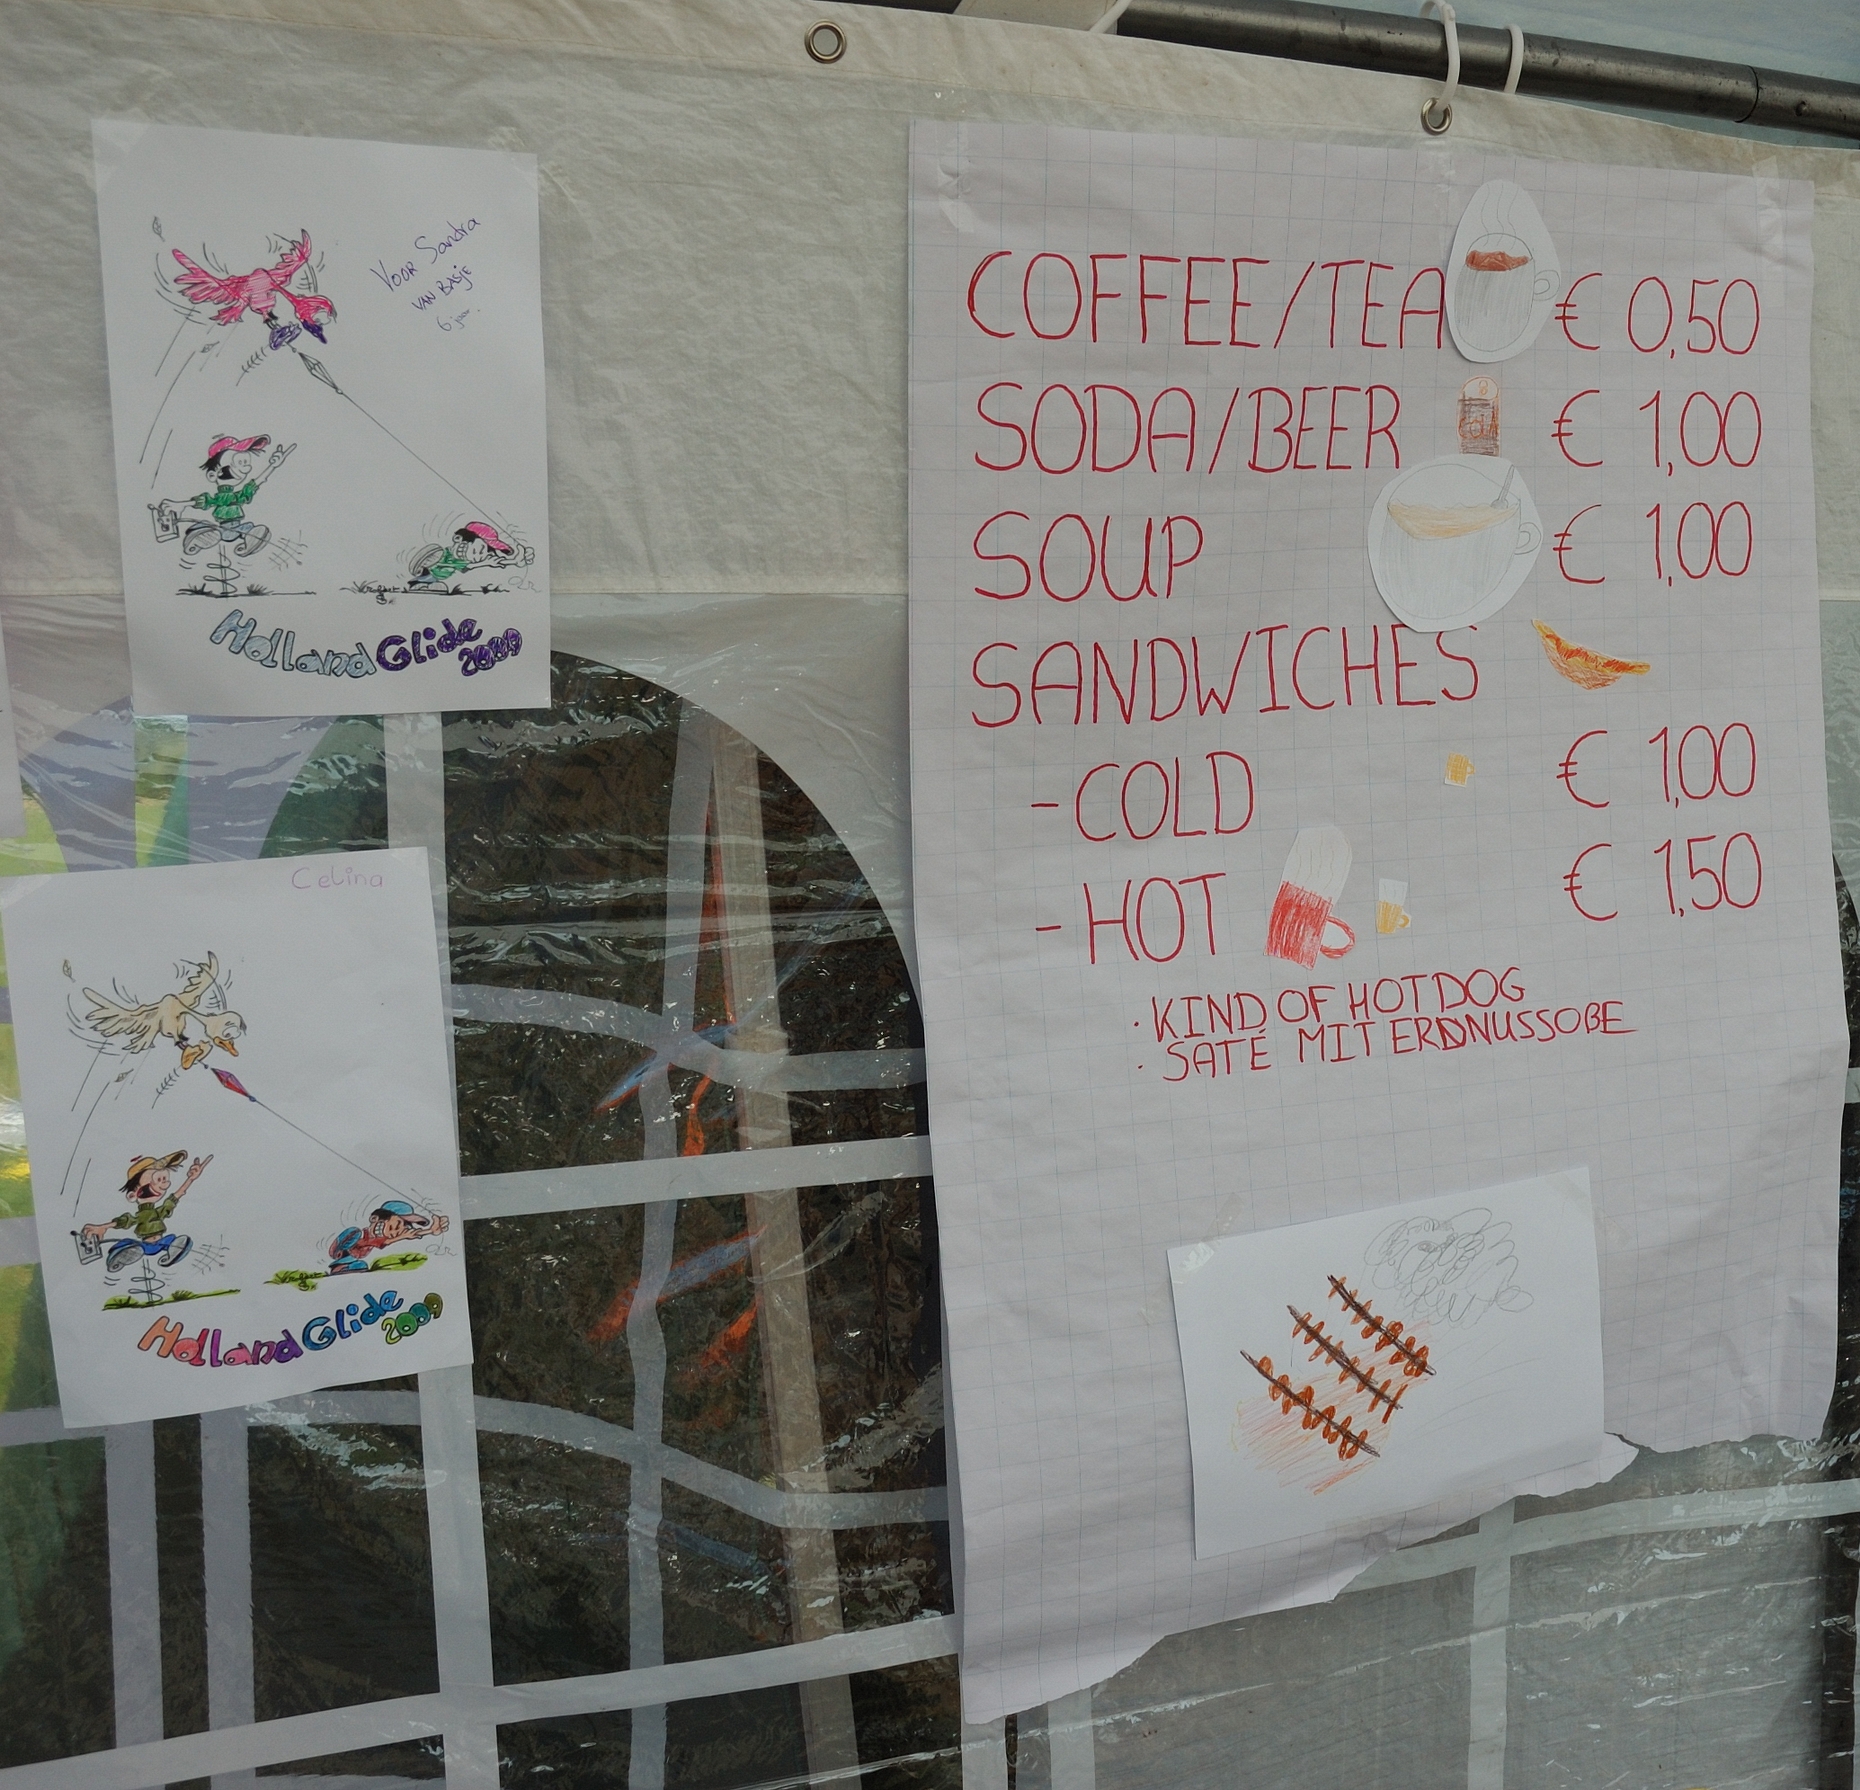 Voor Sandra
van Basje
6 jaar.
Holland Glide
2009
Celina
Holland Glide
2009
COFFEE/TEA € 0,50
SODA/BEER € 1,00
SOUP € 1,00
SANDWICHES
-COLD € 1,00
-HOT € 1,50
· KIND OF HOTDOG
· SATÉ MIT ERDNUSSOBE